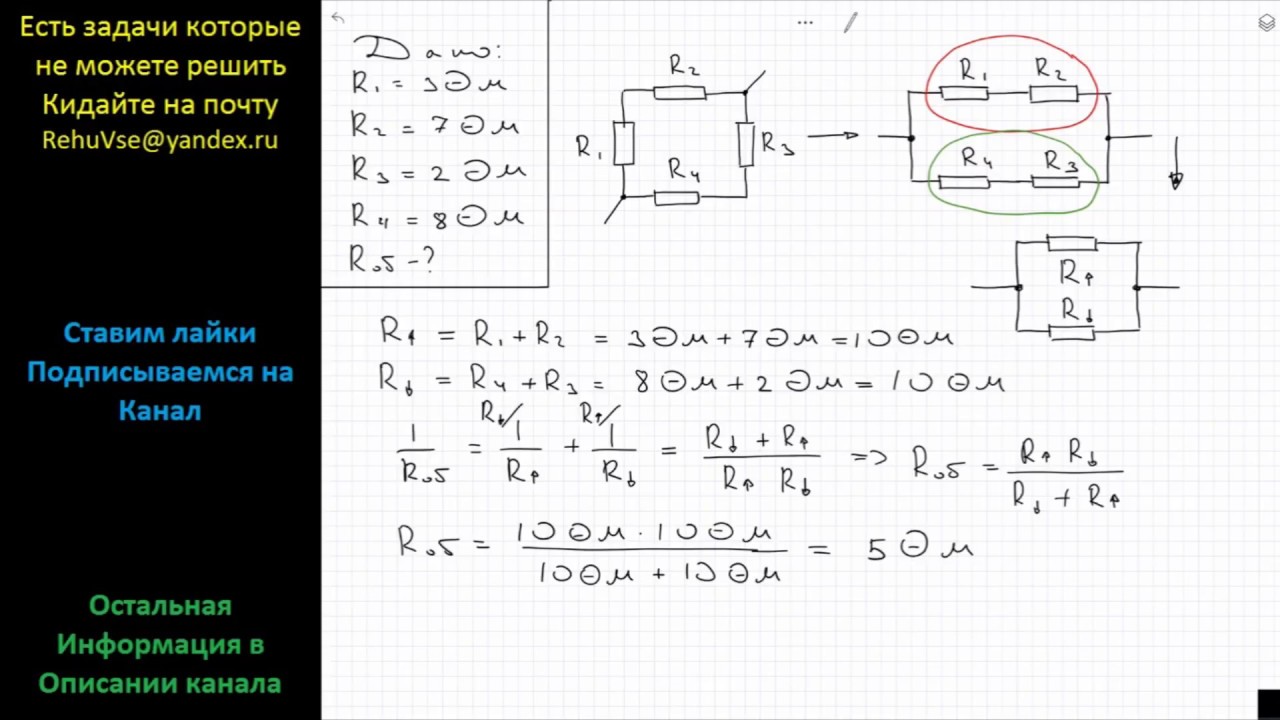 Есть задачи которые
не можете решить
Кидайте на почту
RehuVse@yandex.ru
Ставим лайки
Подписываемся на
Канал
Остальная
Информация в
Описании канала
Дано:
R₁ = 3 Ом
R₂ = 7 Ом
R₃ = 2 Ом
R₄ = 8 Ом
Rоб - ?
R₂
R₁
R₃
R₄
R₁ R₂
R₄ R₃
R↑
R↓
R↑ = R₁ + R₂ = 3 Ом + 7 Ом = 10 Ом
R↓ = R₄ + R₃ = 8 Ом + 2 Ом = 10 Ом
1/Rоб = R↓/ 1/R↑ + R↑/ 1/R↓ = (R↓ + R↑)/(R↑ R↓) => Rоб = (R↑ R↓)/(R↓ + R↑)
Rоб = (10 Ом · 10 Ом)/(10 Ом + 10 Ом) = 5 Ом